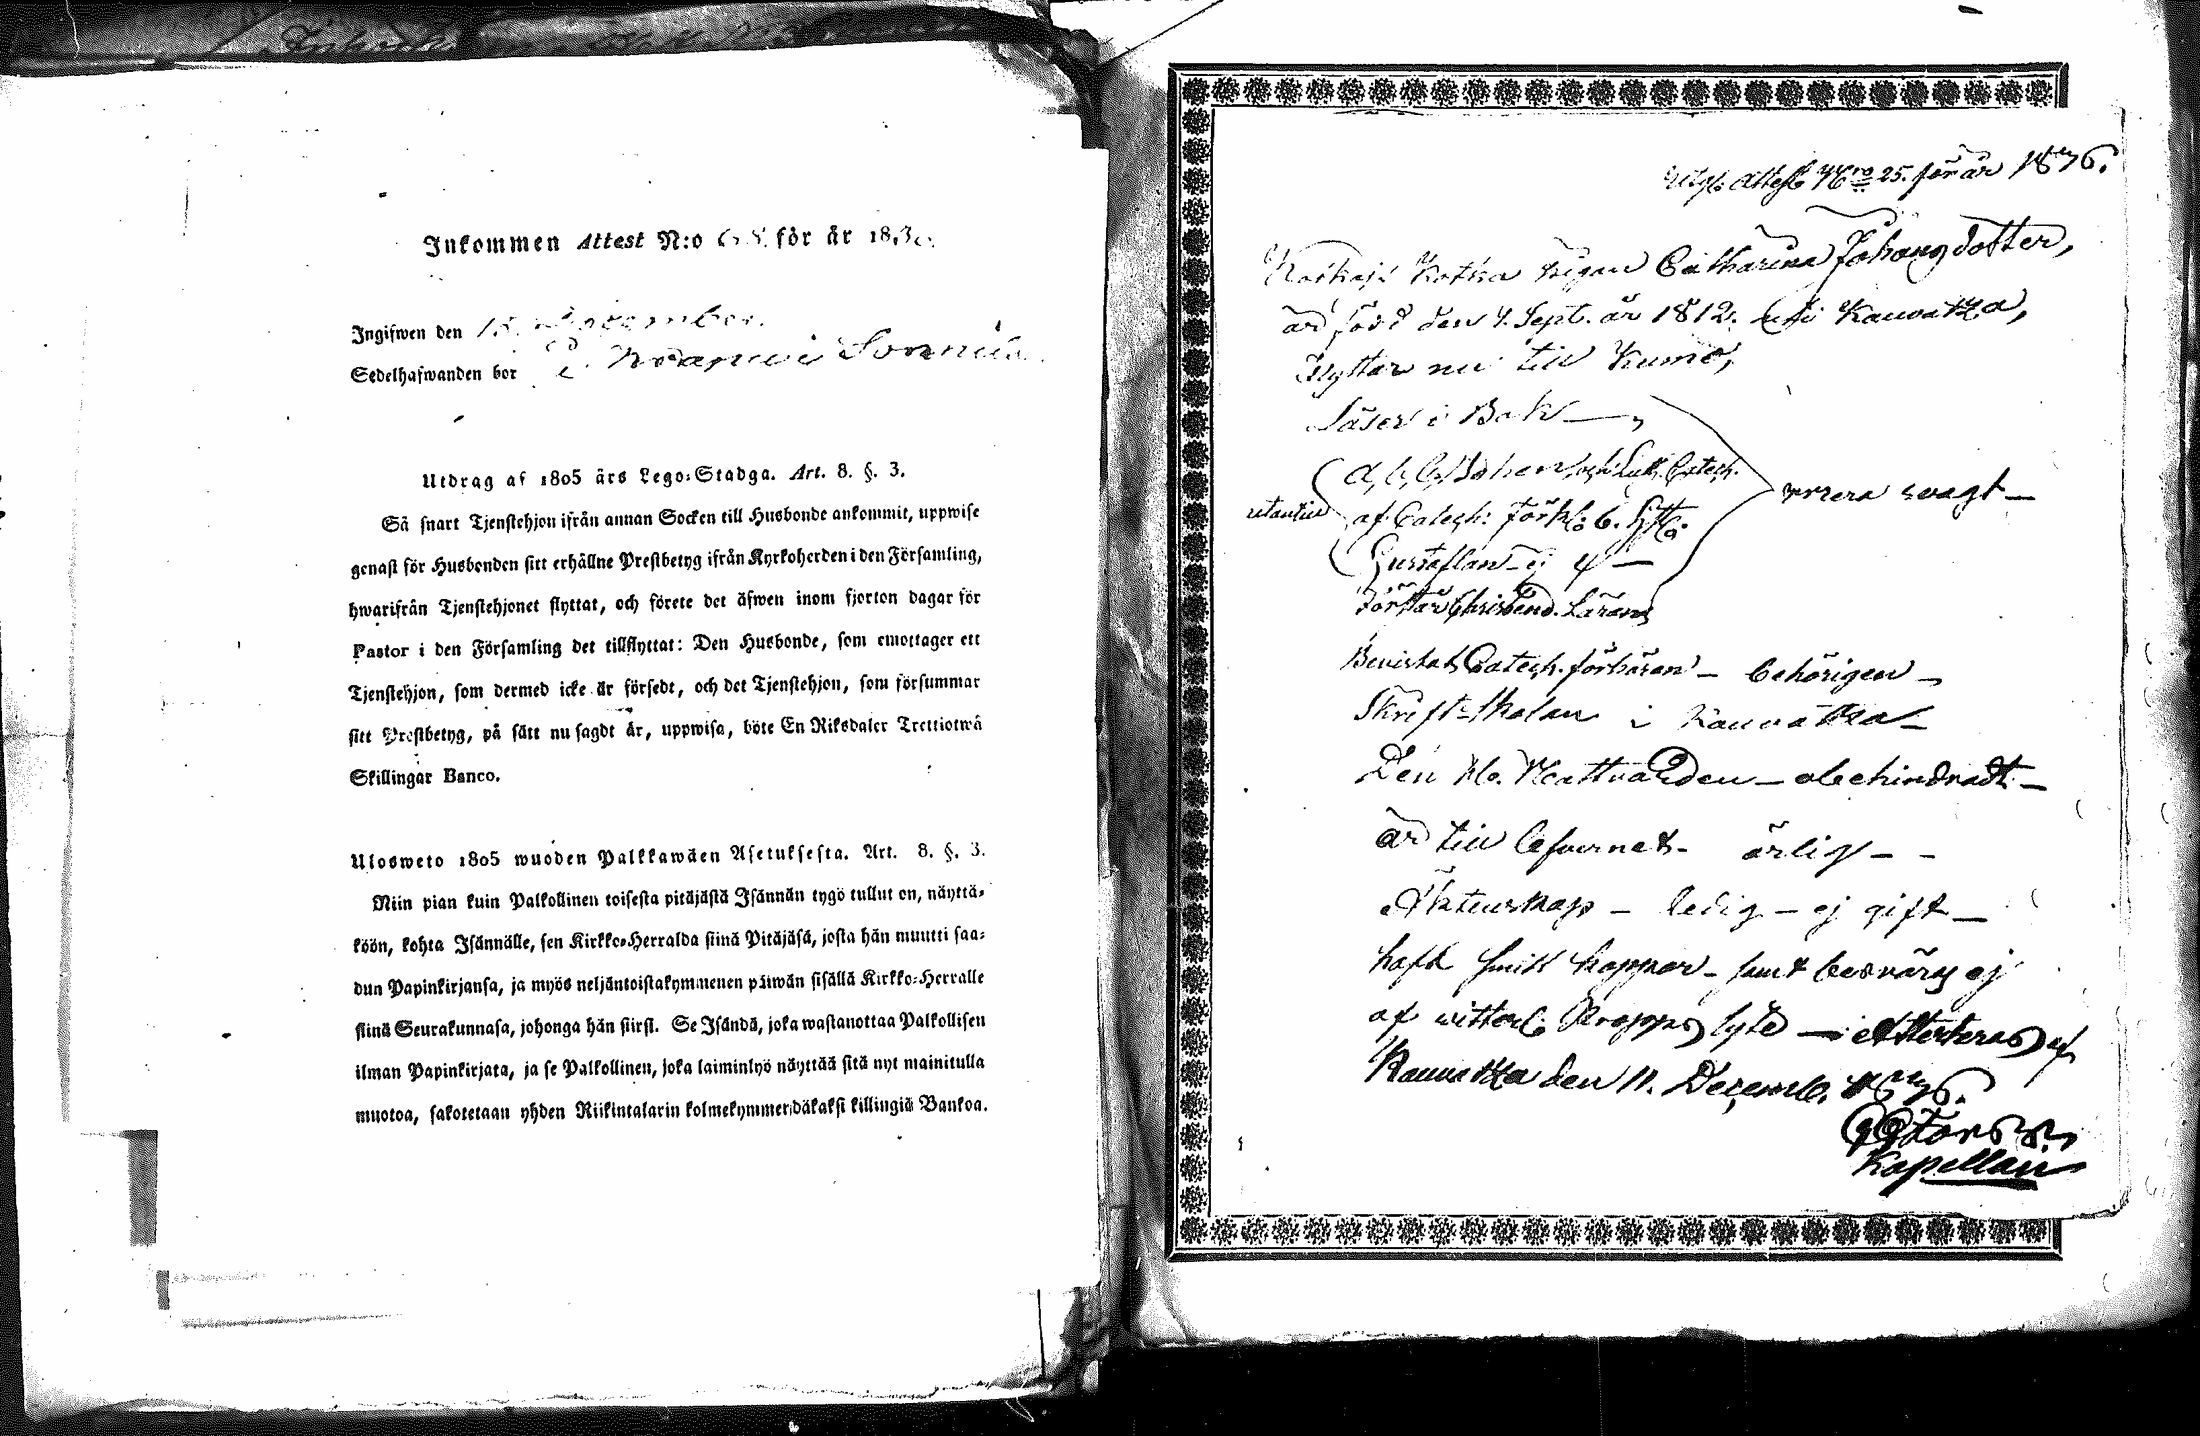 Inkommen Attest N:o 68. för år 183
Ingifwen den 15 December.
Sedelhafwanden bor i
Utdrag af 1805 års Lego-Stadga. Art. 8. §. 3.
Så snart Tjenstehjon ifrån annan Socken till Husbonde ankommit, uppwise
genast för Husbonden sitt erhållne Prestbetyg ifrån Kyrkoherden i den Församling,
hwarifrån Tjenstehjonet flyttat, och förete det äfwen inom fjorton dagar för
Pastor i den Församling det tillflyttat: Den Husbonde, som emottager ett
Tjenstehjon, som dermed icke är försedt, och det Tjenstehjon, som försummar
sitt Prestbetyg, på sätt nu sagdt är, uppwisa, böte En Riksdaler Trettiotwå
Skillingar Banco.
Ulosweto 1805 wuoden Palkkawäen Asetuksesta. Art. 8. §. 3.
Niin pian kuin Palkollinen toisesta pitäjästä Isännän tygö tullut on, näyttä-
köön, kohta Isännälle, sen Kirkko-Herralda siinä Pitäjäsä, josta hän muutti saa-
dun Papinkirjansa, ja myös neljäntoistakymmenen päiwän sisällä Kirkko-Herralle
siinä Seurakunnasa, johonga hän siirsi. Se Isändä, joka wastanottaa Palkollisen
ilman Papinkirjata, ja se Palkollinen, joka laiminlyö näyttää sitä nyt mainitulla
muotoa, sakotetaan yhden Riikintalarin kolmekymmendäkaksi killingiä Bankoa.
Utg. Attest Nro 25. för år 1836.
Kotka pigan Catharina Johansdotter,
är född den 4. Sept. år 1812. uti Kauvatza,
flyttar nu till Kumo,
Läser i Bok —
A, b, c, Boken, och Luth. Catech.
utantill af Catech. Förkl. 6. Hftl. svagt —
Gustafian — ej
Förstår Christend. Läran
Bevistat Catech. förhören — behörigen —
Skrift-skolan i Kauvatza —
Den H. Nattvarden — obehindradt —
är till lefvernet — ärlig — —
Äktenskap — ledig — ej gift —
haft små koppor — samt besväras ej
af witterl. Kropps lyte — Attesteras af
Kauvatza den 11. Decemb. 1836.
Kapellan